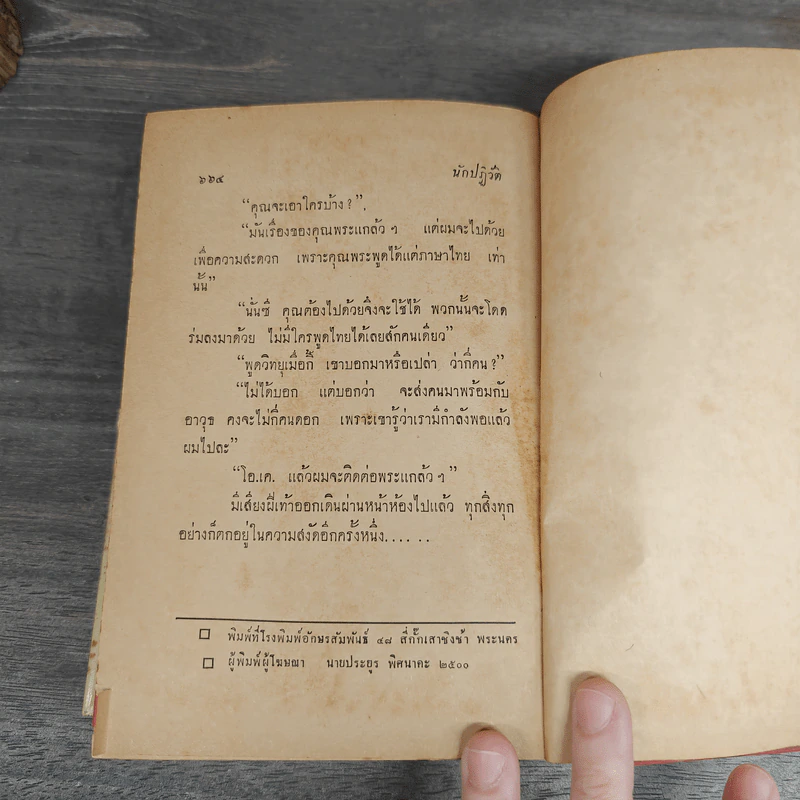 ๖๖๔ นักปฏิวัติ
“คุณจะเอาใครบ้าง ?”.
“มันเรื่องของคุณพระแกล้ว ๆ แต่ผมจะไปด้วย
เพื่อความสะดวก เพราะคุณพระพูดได้แต่ภาษาไทย เท่า
นั้น”
“นั่นซี คุณต้องไปด้วยจึงจะใช้ได้ พวกนั้นจะโดด
ร่มลงมาด้วย ไม่มีใครพูดไทยได้เลยสักคนเดียว”
“พูดวิทยุเมื่อกี้ เขาบอกมาหรือเปล่า ว่ากี่คน ?”
“ไม่ได้บอก แต่บอกว่า จะส่งคนมาพร้อมกับ
อาวุธ คงจะไม่กี่คนดอก เพราะเขารู้ว่าเรามีกำลังพอแล้ว
ผมไปละ”
“โอ.เค. แล้วผมจะติดต่อพระแกล้ว ๆ”
มีเสียงฝีเท้าออกเดินผ่านหน้าห้องไปแล้ว ทุกสิ่งทุก
อย่างก็ตกอยู่ในความสงัดอีกครั้งหนึ่ง.... ..
□ พิมพ์ที่โรงพิมพ์อักษรสัมพันธ์ ๔๘ สี่กั๊กเสาชิงช้า พระนคร
□ ผู้พิมพ์ผู้โฆษณา นายประยูร พิศนาคะ ๒๕๐๐